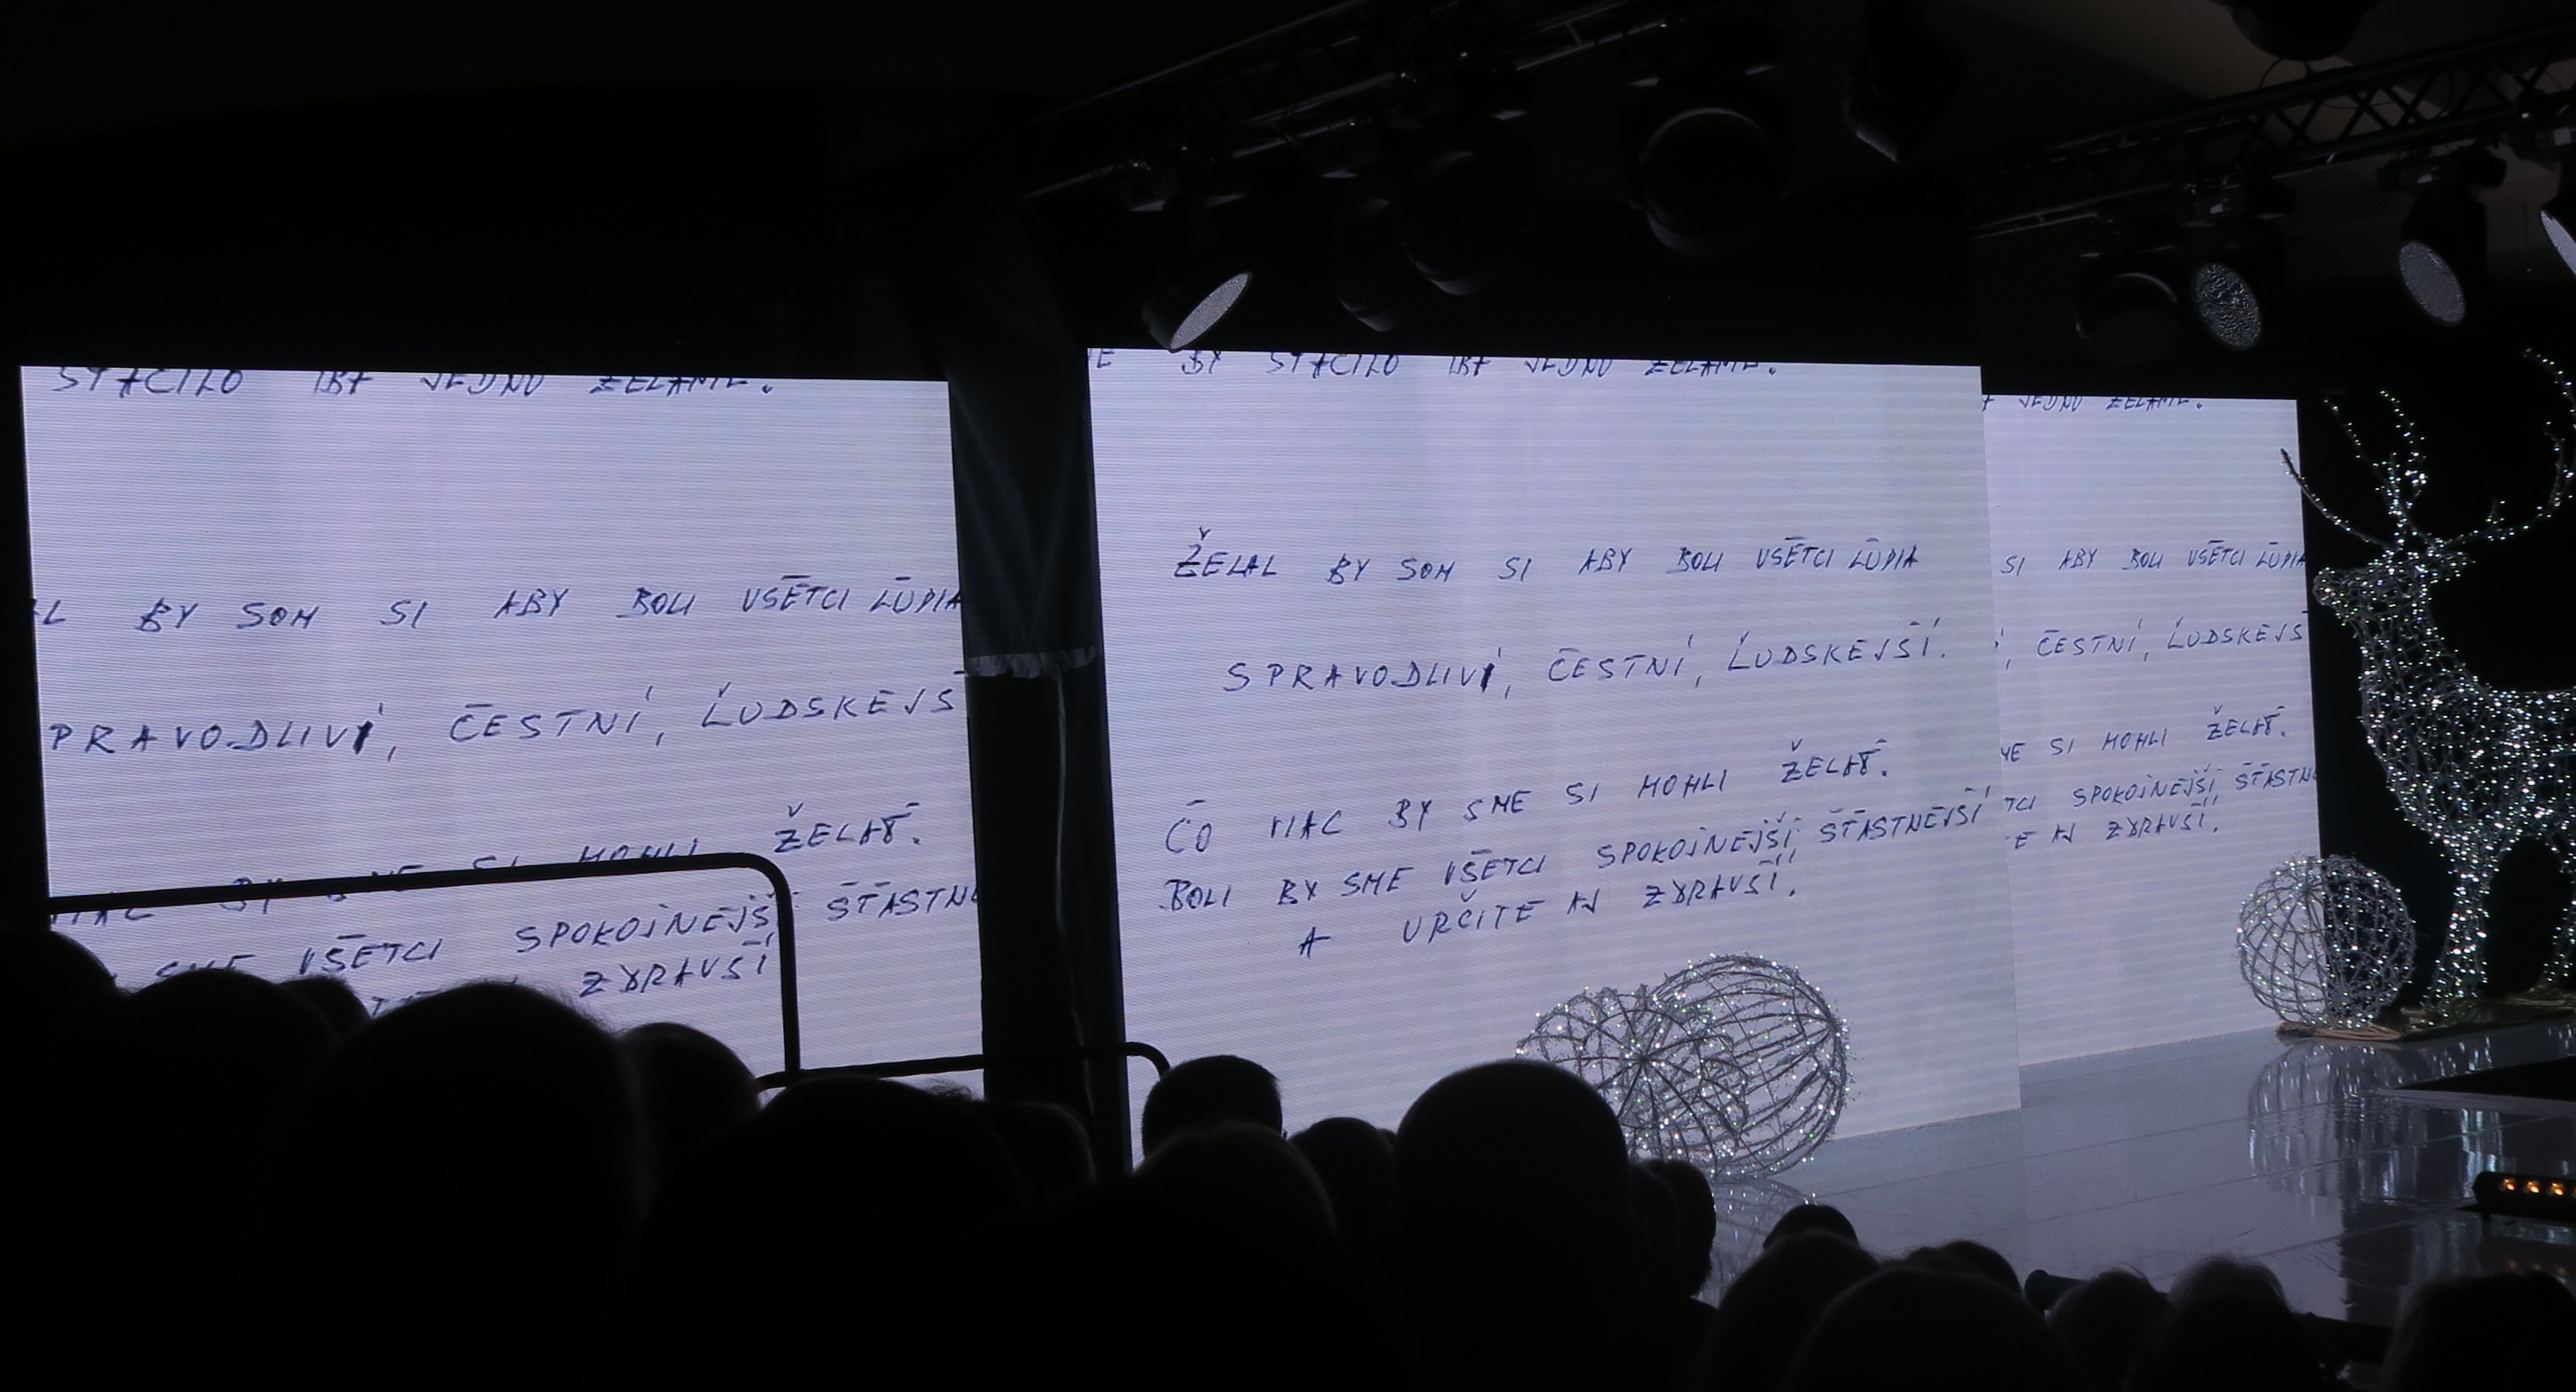 STAČILO IBA JEDNO ŽELANIE.
BY SOM SI ABY BOLI VŠETCI ĽUDIA
PRAVODLIVÍ, ČESTNÍ, ĽUDSKEJŠ
SI MOHLI ŽELAŤ.
SME VŠETCI SPOKOJNEJŠÍ ŠŤASTN
ZDRAVŠÍ
BY STAČILO IBA JEDNO ŽELANIE.
ŽELAL BY SOM SI ABY BOLI VŠETCI ĽUDIA
SPRAVODLIVÍ, ČESTNÍ, ĽUDSKEJŠÍ.
ČO VIAC BY SME SI MOHLI ŽELAŤ.
BOLI BY SME VŠETCI SPOKOJNEJŠÍ ŠŤASTNEJŠÍ
A URČITE AJ ZDRAVŠÍ.
JEDNO ŽELANIE.
SI ABY BOLI VŠETCI ĽUDIA
ČESTNÍ, ĽUDSKEJŠ
ME SI MOHLI ŽELAŤ.
TCI SPOKOJNEJŠÍ ŠŤASTN
E AJ ZDRAVŠÍ.